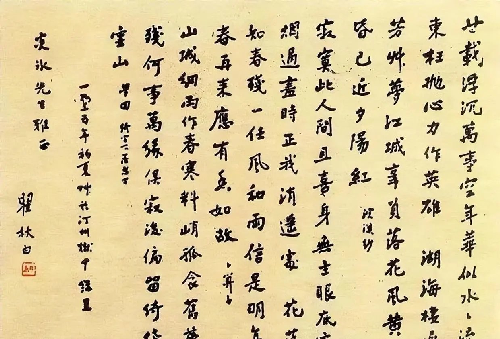 廿載浮沉萬事空年華似水〻流
東枉拋心力作英雄 湖海棲
芳艸夢江城辜負落花風黃
昏已近夕陽紅 浣溪紗
寂寞此人間且喜身無主眼底
烟過盡時正我逍遙處 花落
知春殘一任風和雨信是明年
春再來應有香如故 卜算子
山城細雨作春寒料峭孤衾舊夢
殘何事萬緣俱寂後偏留綺
雲山
一九三五年初夏 於汀州獄中 錄呈
炎冰先生雅正
瞿秋白